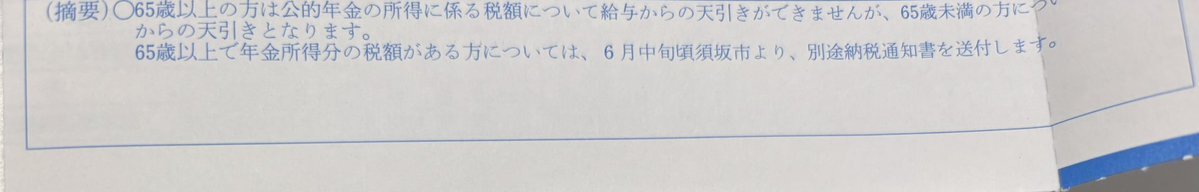 (摘要)○65歳以上の方は公的年金の所得に係る税額について給与からの天引きができませんが、65歳未満の方につ
からの天引きとなります。
65歳以上で年金所得分の税額がある方については、6月中旬頃須坂市より、別途納税通知書を送付します。